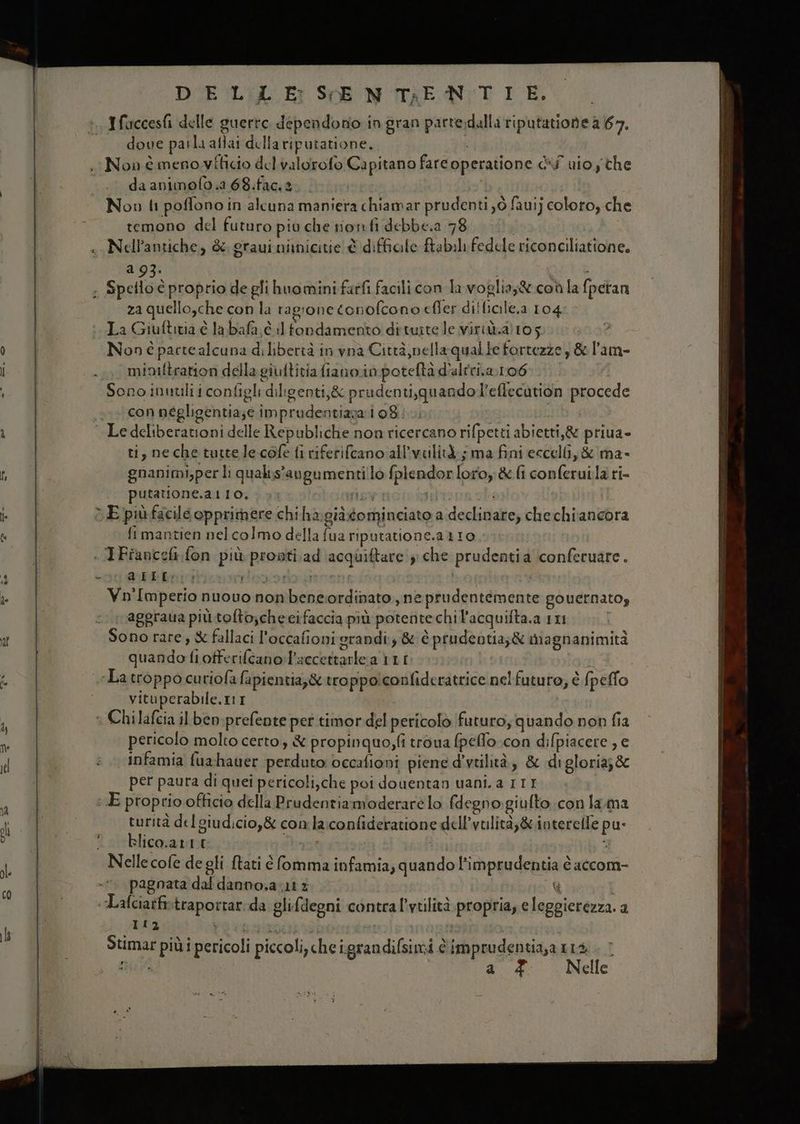 DELLE SENTENTIE.
I succesſi delle guerre dependono in gran parte dalla riputatione a 67.
doue parla aſſai della riputatione.
Non è meno vfficio del valoroſo Capitano fare operatione da ſauio, che
da animoſo.a 68.fac.2.
Non ſi poſſono in alcuna maniera chiamar prudenti, ò ſauij coloro, che
temono del futuro piu che non ſi debbe.a 78
Nell'antiche, & graui nimicitie è difficile ſtabili fedele riconciliatione.
a 93.
Speſſo è proprio de gli huomini farſi facili con la voglia,& con la ſperan
za quello,che con la ragione conoſcono eſſer difficile.a 104
La Giuſtitia è la baſa,è il fondamento di tutte le virtù.a 105
Non è parte alcuna di libertà in vna Città,nella qual le fortezze, & l'am-
miniſtration della giuſtitia ſiano in poteſtà d'altri.a 106
Sono inutili i conſigli diligenti,& prudenti,quando l'eſſecution procede
con négligentia,e imprudentia.a 108
Le deliberationi delle Republiche non ricercano riſpetti abietti,& priua-
ti, ne che tutte le coſe ſi riferiſcano all'vtilità ; ma fini eccelſi, & ma-
gnanimi,per li quali s'augumenti lo ſplendor loro, & ſi conſerui la ri-
putatione.a 110.
E più facile opprimere chi ha già cominciato a declinare, che chi ancora
ſi mantien nel colmo della ſua riputatione.a 110
I Franceſi ſon più pronti ad acquiſtare, che prudenti a conſeruare.
a 111
Vn'Imperio nuouo non bene ordinato, ne prudentemente gouernato,
aggraua più toſto,che ei faccia più potente chi l'acquiſta.a 111
Sono rare, & fallaci l'occaſioni grandi, & è prudentia,& magnanimità
quando ſi offeriſcano l'accettarle a 111
La troppo curioſa ſapientia,& troppo conſideratrice nel futuro, è ſpeſſo
vituperabile.111
Chi laſcia il ben preſente per timor del pericolo futuro, quando non ſia
pericolo molto certo, & propinquo,ſi troua ſpeſſo con diſpiacere , e
infamia ſua hauer perduto occaſioni piene d'vtilità, & di gloria,&
per paura di quei pericoli,che poi douentan uani. a 111
E proprio officio della Prudentia moderare lo ſdegno giuſto con la ma
turità del giudicio,& con la conſideratione dell'vtilità,& intereſſe pu-
blico.a 111
Nelle coſe de gli ſtati è ſomma infamia, quando l'imprudentia è accom-
pagnata dal danno.a 112
Laſciarſi traportar da gli ſdegni contra l'vtilità propria, e leggierezza. a
112
Stimar più i pericoli piccoli, che i grandiſsimi è imprudentia,a 112
a Nelle